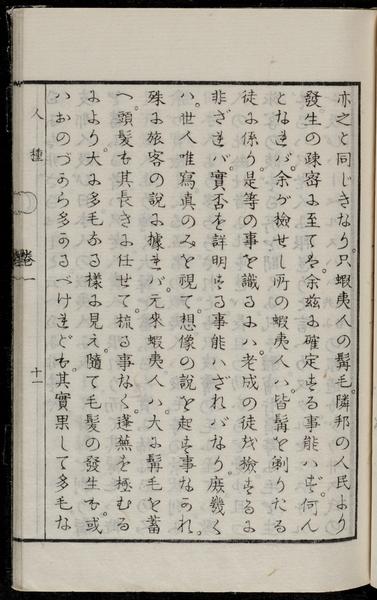 亦之と同じきなり。只蝦夷人の髯毛。隣邦の人民より
發生の疎密に至ては。余茲に確定する事能ハず。何ん
となれバ。余が檢せし所の蝦夷人ハ。皆髯を剃りたる
徒に係り。是等の事を識るにハ。老成の徒を檢するに
非ざれバ。實否を詳明する事能ハざれバなり。庶幾く
ハ。世人唯寫真のみを視て。想像の說を起す事なかれ。
殊に旅客の說に據れバ。元來蝦夷人ハ。大に髯毛を蓄
へ。頭髮も其長さに任せて。梳る事なく。蓬蕪を極むる
により。大に多毛なる樣に見え。隨て毛髮の發生も。或
ハおのづから多かるべけれども。其實果して多毛な
人種
卷一
十一